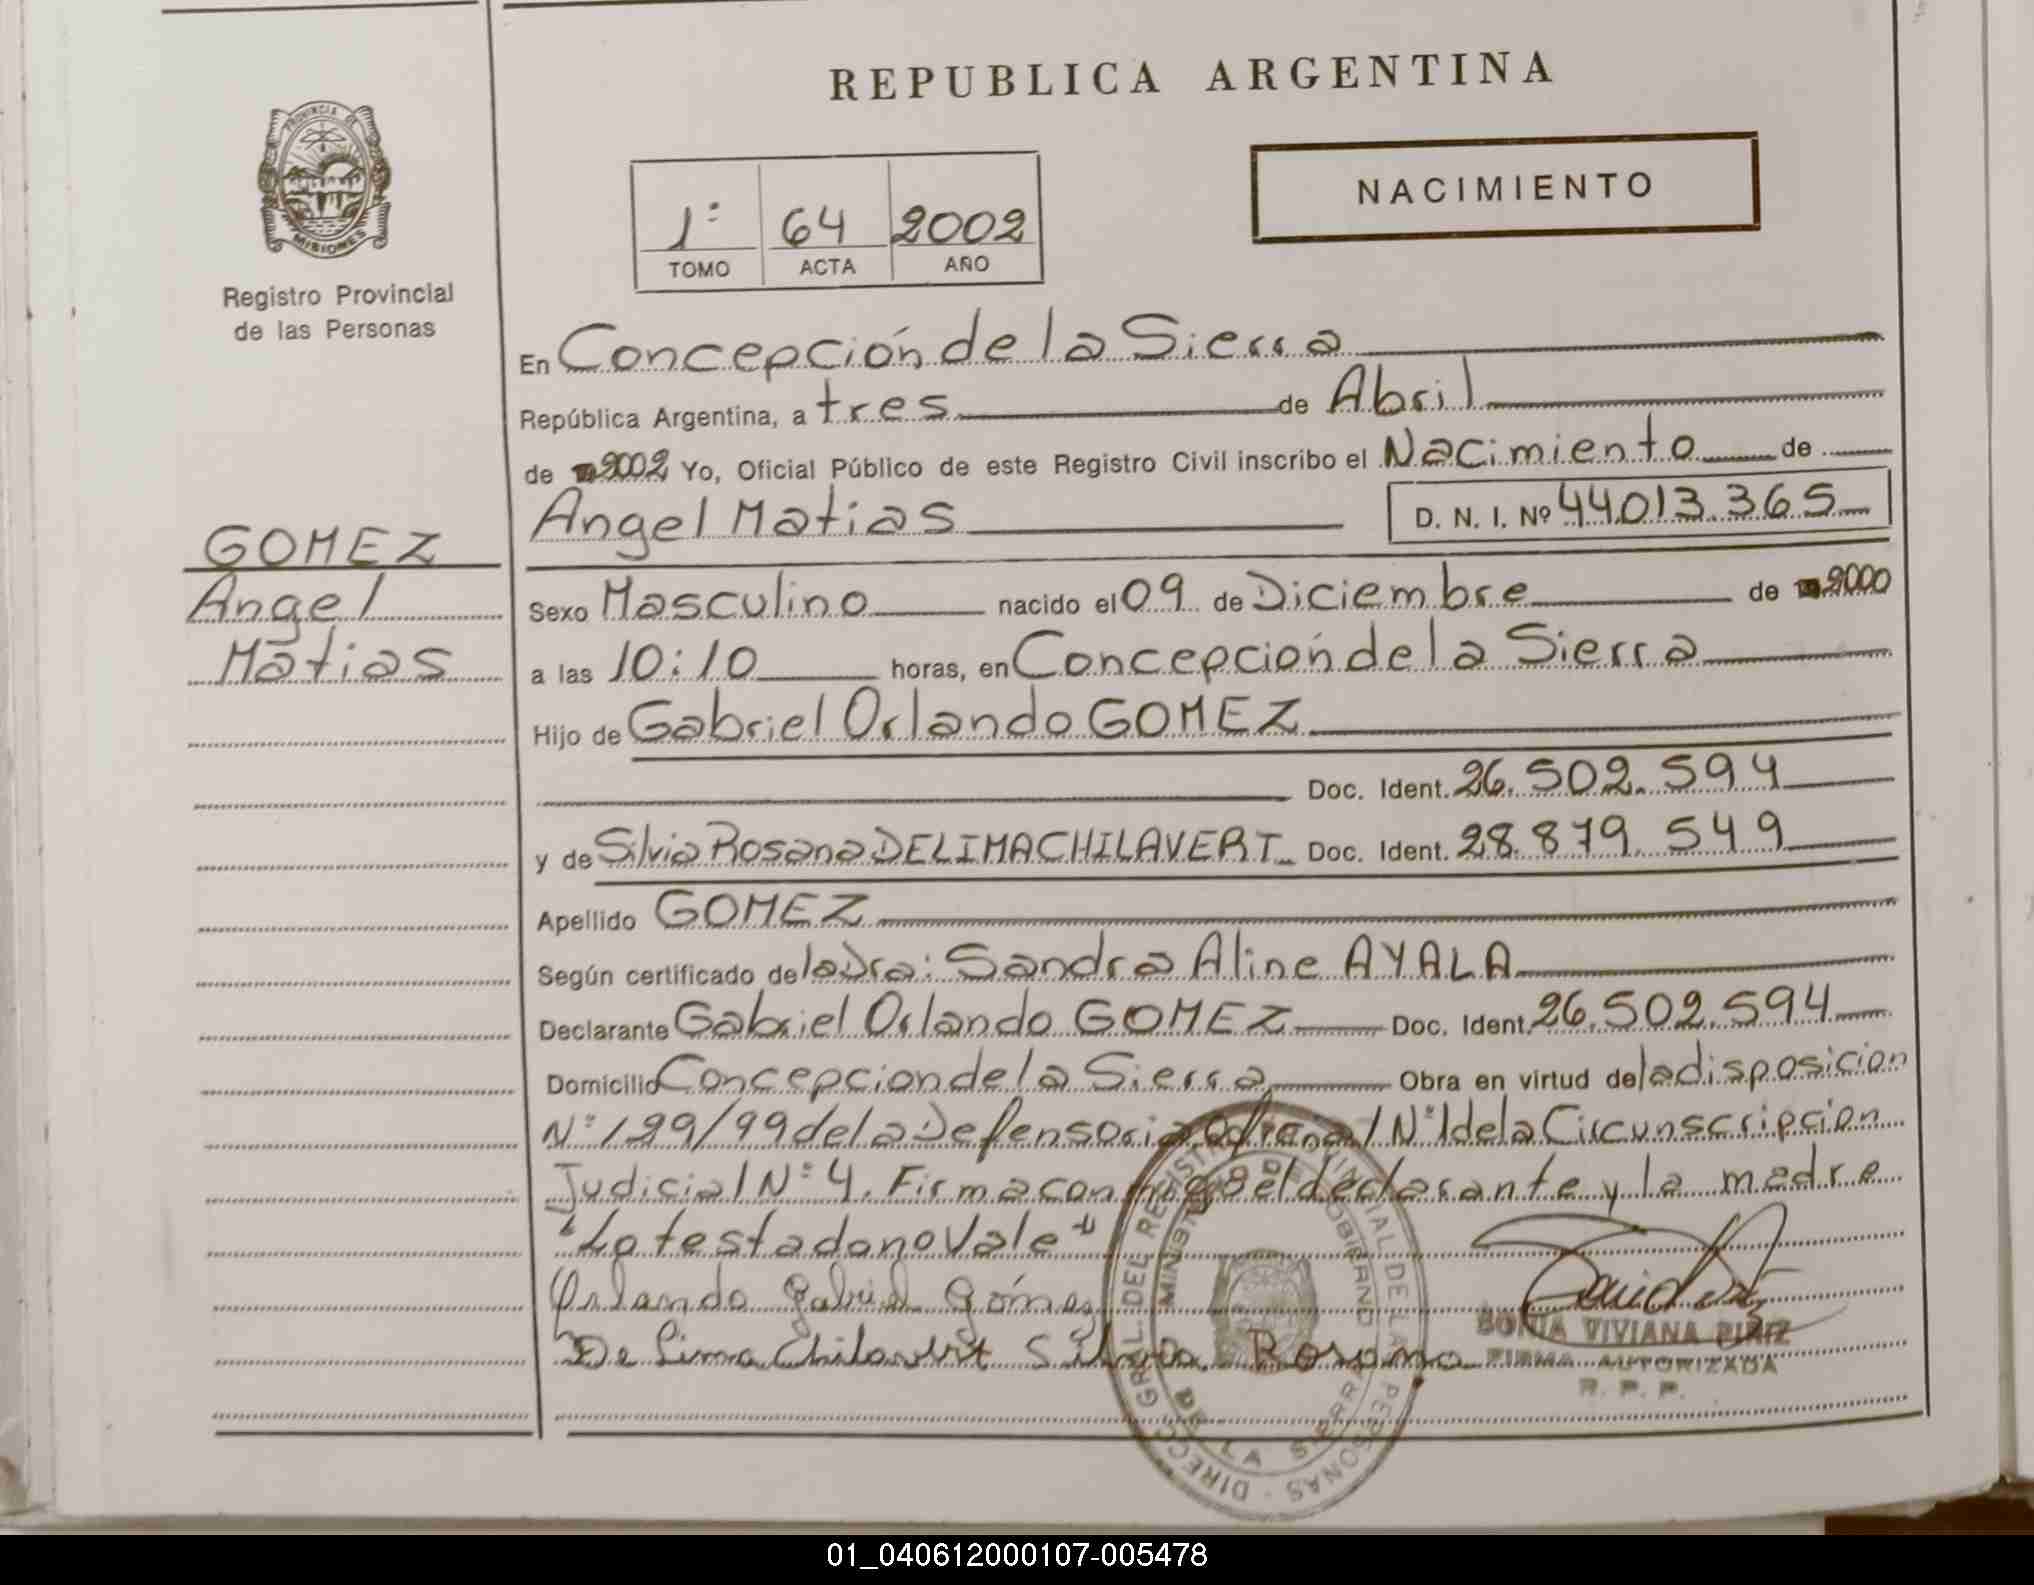 REPUBLICA ARGENTINA
PROVINCIA DE
MISIONES
Registro Provincial
de las Personas
NACIMIENTO
1º 64 2002
TOMO ACTA AÑO
En Concepción de la Sierra
República Argentina, a tres de Abril
de 2002 Yo, Oficial Público de este Registro Civil inscribo el Nacimiento de
Angel Matias D. N. I. Nº 44.013.365
GOMEZ
Angel
Matias
Sexo Masculino nacido el 09 de Diciembre de 2000
a las 10:10 horas, en Concepción de la Sierra
Hijo de Gabriel Orlando GOMEZ
Doc. Ident. 26.502.594
y de Silvia Rosana DE LIMA CHILAVERT Doc. Ident. 28.879.549
Apellido GOMEZ
Según certificado de la Dra: Sandra Aline AYALA
Declarante Gabriel Orlando GOMEZ Doc. Ident. 26.502.594
Domicilio Concepcion de la Sierra Obra en virtud de la disposicion
Nº 199/99 de la Defensoria Nº 1 de la Circunscripcion
Judicial Nº 4. Firma con migo el declarante y la madre
"Lo testado no Vale"
Orlando Gabriel Gómez
De Lima Chilavert Silvia Rosana
SONIA VIVIANA PIRIZ
FIRMA AUTORIZADA
R. P. P.
DIRECC. GRAL. DEL REGISTRO PROVINCIAL DE LAS PERSONAS
DE LA SIERRA
01_040612000107-005478